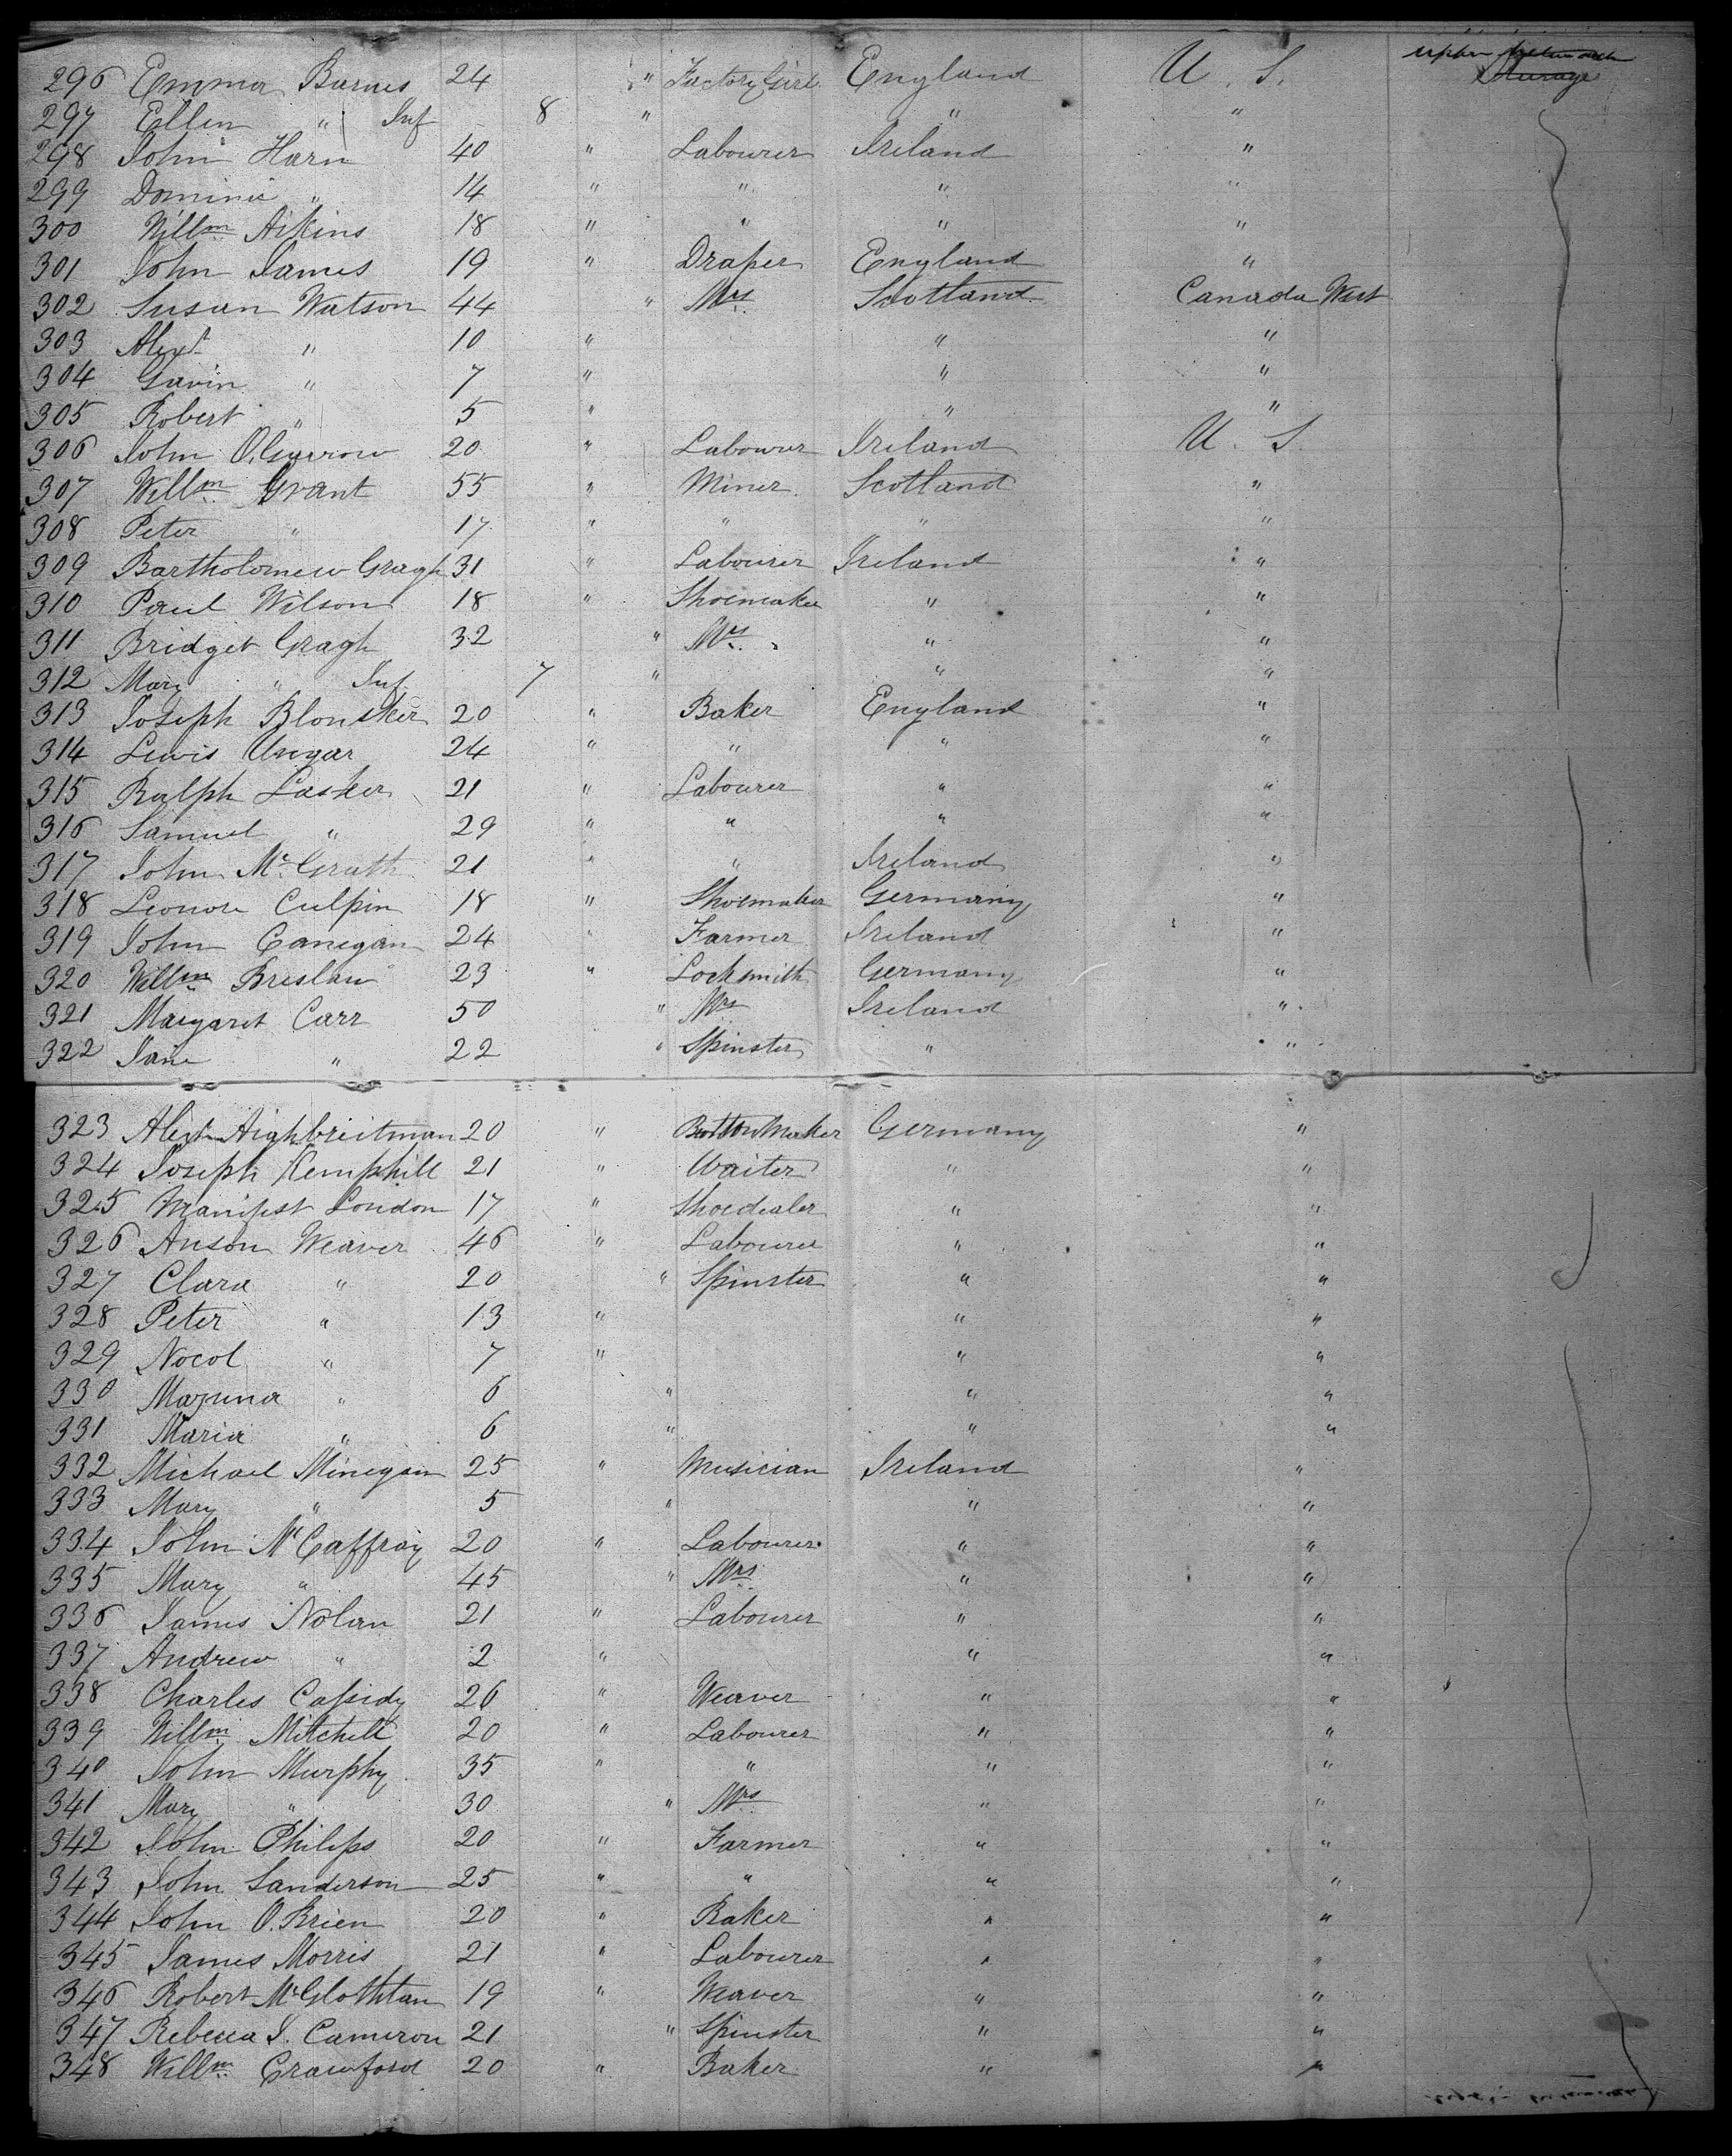 296 Emma Barnes 24 " Factory Girl England U. S. Steerage
297 Ellen " Inf 8 " " "
298 John Harn 40 " Labourer Ireland "
299 Dominic " 14 " " " "
300 Willm Aikins 18 " " " "
301 John James 19 " Draper England "
302 Susan Watson 44 " Mrs Scotland Canada West
303 Alexr " 10 " " "
304 Gavin " 7 " " "
305 Robert " 5 " " "
306 John O. Garrow 20 " Labourer Ireland U. S.
307 Willm Grant 55 " Miner Scotland "
308 Peter " 17 " " " "
309 Bartholomew Gragh 31 " Labourer Ireland "
310 Paul Wilson 18 " Shoemaker " "
311 Bridget Gragh 32 " Mrs " "
312 Mary " Inf 7 " " "
313 Joseph Blonsker 20 " Baker England "
314 Lewis Ungar 24 " " " "
315 Ralph Lasker 21 " Labourer " "
316 Samuel " 29 " " " "
317 John McGrath 21 " " Ireland "
318 Leonore Culpin 18 " Shoemaker Germany "
319 John Canegan 24 " Farmer Ireland "
320 Willm Breslaw 23 " Locksmith Germany "
321 Margaret Carr 50 " Mrs Ireland "
322 Jane " 22 " Spinster " "
323 Aighbreitman 20 " Button Maker Germany "
324 Joseph Hemphill 21 " Waiter " "
325 Manifest London 17 " Shoedealer " "
326 Anson Weaver 46 " Labourer " "
327 Clara " 20 " Spinster " "
328 Peter " 13 " " "
329 Nocol " 7 " " "
330 " 6 " " "
331 Maria " 6 " " "
332 Michael Minegan 25 " Musician Ireland "
333 Mary " 5 " " "
334 John McCaffray 20 " Labourer " "
335 Mary " 45 " Mrs " "
336 James Nolan 21 " Labourer " "
337 Andrew " 2 " " "
338 Charles Cassidy 26 " Weaver " "
339 Willm Mitchell 20 " Labourer " "
340 John Murphy 35 " " " "
341 Mary " 30 " Mrs " "
342 John Philips 20 " Farmer " "
343 John Sanderson 25 " " " "
344 John O. Brien 20 " Baker " "
345 James Morris 21 " Labourer " "
346 Robert McGlothlan 19 " Weaver " "
347 Rebecca J. Cameron 21 " Spinster " "
348 Willm Crawford 20 " Baker " "